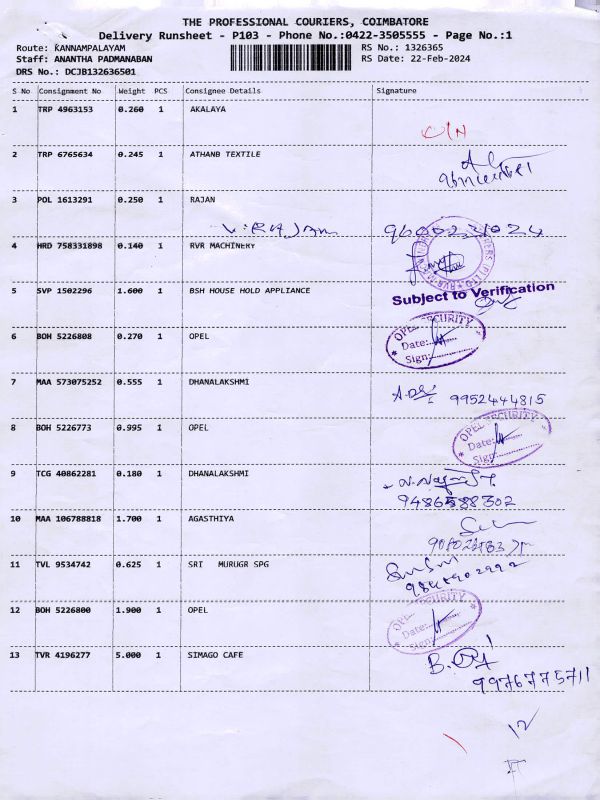 THE PROFESSIONAL COURIERS, COIMBATORE
Delivery Runsheet - P103 - Phone No.:0422-3505555 - Page No.:1
Route: KANNAMPALAYAM RS No.: 1326365
Staff: ANANTHA PADMANABAN RS Date: 22-Feb-2024
DRS No.: DCJB132636501
S No Consignment No Weight PCS Consignee Details Signature
1 TRP 4963153 0.260 1 AKALAYA
2 TRP 6765634 0.245 1 ATHANB TEXTILE
3 POL 1613291 0.250 1 RAJAN
V. RAJAN
4 HRD 758331898 0.140 1 RVR MACHINERY
5 SVP 1502296 1.600 1 BSH HOUSE HOLD APPLIANCE Subject to Verification
6 BOH 5226808 0.270 1 OPEL
OPEL SECURITY
Date:
Sign:
7 MAA 573075252 0.555 1 DHANALAKSHMI
9952444815
8 BOH 5226773 0.995 1 OPEL
OPEL SECURITY
Date:
Sign:
9 TCG 40862281 0.180 1 DHANALAKSHMI
9486588302
10 MAA 106788818 1.700 1 AGASTHIYA
11 TVL 9534742 0.625 1 SRI MURUGR SPG
12 BOH 5226800 1.900 1 OPEL
OPEL SECURITY
Date:
Sign:
13 TVR 4196277 5.000 1 SIMAGO CAFE
9976775711
12